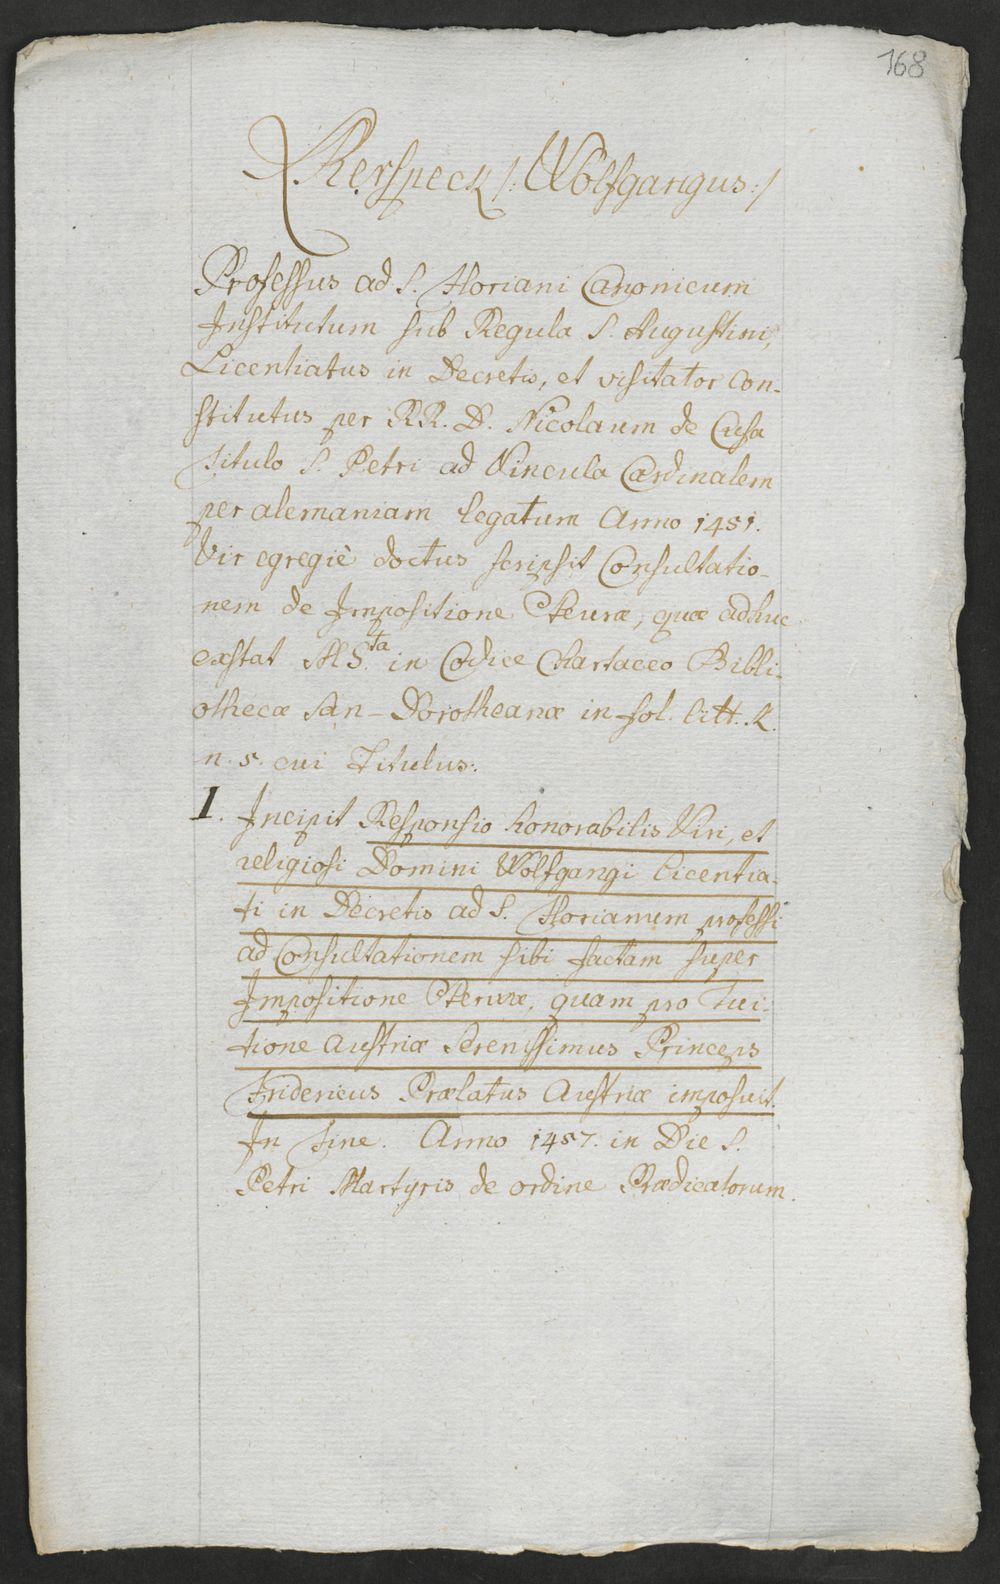 168
Kerspeck /: Wolfgangus :/
Professus ad S. Floriani Canonicum
Institutum sub Regula S. Augustini,
Licentiatus in Decretis, et visitator con-
stitutus per RR. D. Nicolaum de Cusa
titulo S. Petri ad Vincula Cardinalem
per alemaniam legatum Anno 1451.
Vir egregiè doctus scripsit Consultatio-
nem de Impositione Steuræ, quæ adhuc
exstat MS.ta in Codice Chartaceo Bibli-
othecæ San-Dorotheanæ in fol. litt. K.
n. 5. cui Titulus:
1. Incipit Responsio honorabilis Viri, et
religiosi Domini Wolfgangi Licentia-
ti in Decretis ad S. Florianum professi
ad Consultationem sibi factam super
Impositione Steuræ, quam pro Tui-
tione Austriæ Serenissimus Princeps
Fridericus Prælatus Austriæ imposuit.
In Fine. Anno 1457. in Die S.
Petri Martyris de ordine Prædicatorum.